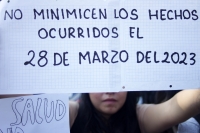 NO MINIMICEN LOS HECHOS
OCURRIDOS EL
28 DE MARZO DEL 2023
SALUD